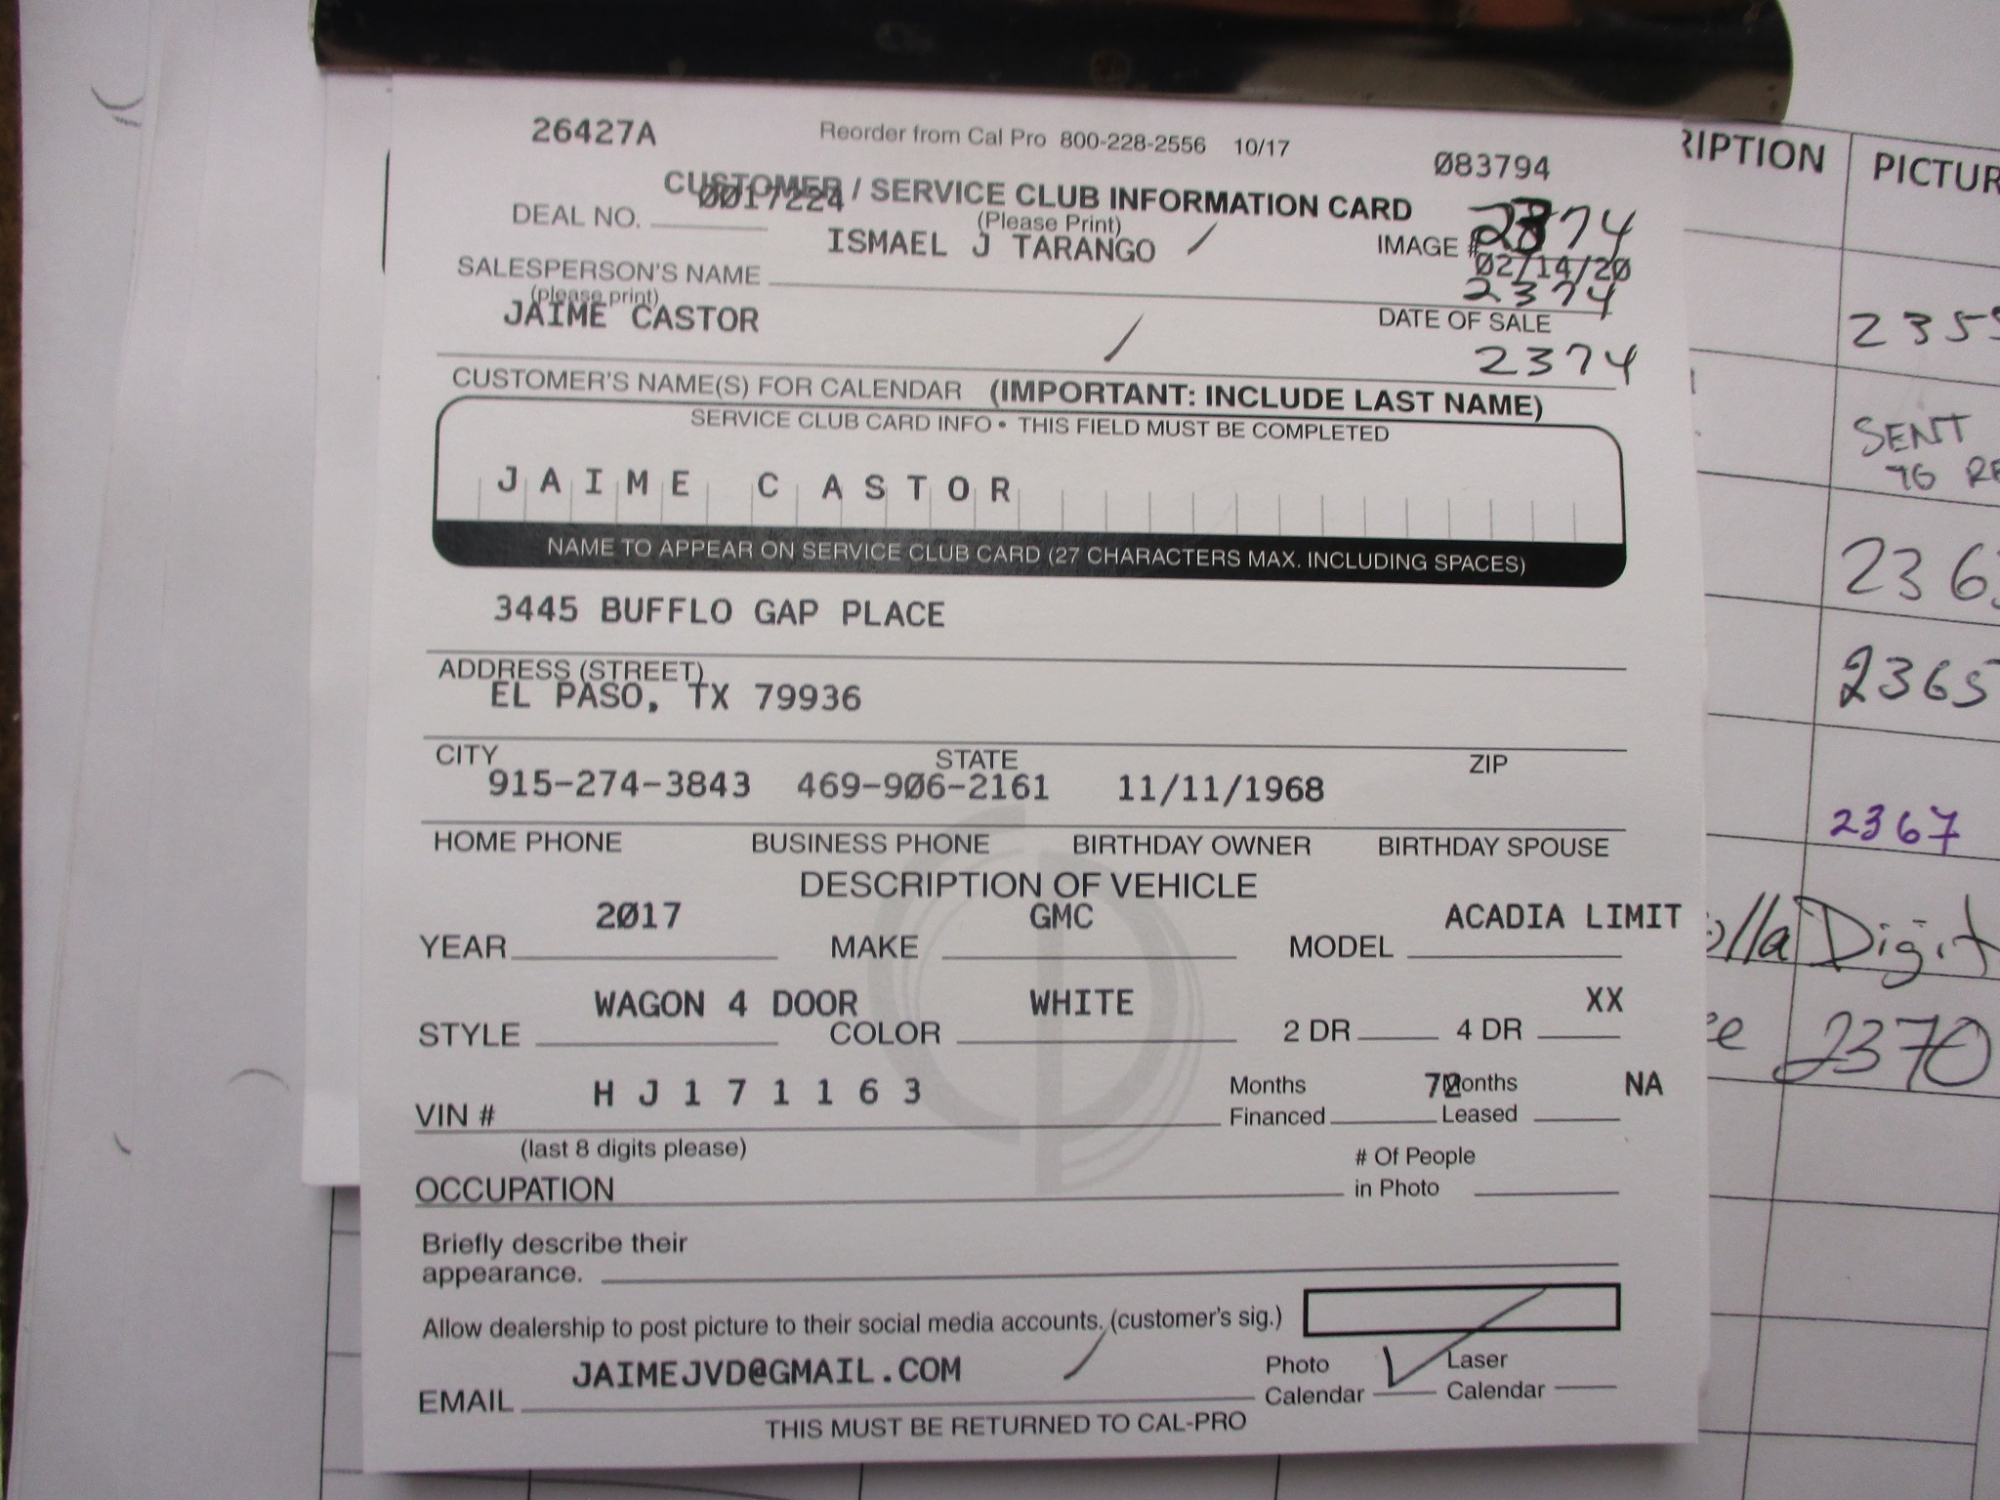 26427A Reorder from Cal Pro 800-228-2556 10/17 083794
CUSTOMER / SERVICE CLUB INFORMATION CARD
(Please Print)
DEAL NO. 0017224
ISMAEL J TARANGO
IMAGE # 2374
02/14/20
2374
SALESPERSON'S NAME
(please print)
JAIME CASTOR
DATE OF SALE
2374
CUSTOMER'S NAME(S) FOR CALENDAR (IMPORTANT: INCLUDE LAST NAME)
SERVICE CLUB CARD INFO • THIS FIELD MUST BE COMPLETED
JAIME CASTOR
NAME TO APPEAR ON SERVICE CLUB CARD (27 CHARACTERS MAX. INCLUDING SPACES)
3445 BUFFLO GAP PLACE
ADDRESS (STREET)
EL PASO, TX 79936
CITY STATE ZIP
915-274-3843 469-906-2161 11/11/1968
HOME PHONE BUSINESS PHONE BIRTHDAY OWNER BIRTHDAY SPOUSE
DESCRIPTION OF VEHICLE
2017 GMC ACADIA LIMIT
YEAR MAKE MODEL
WAGON 4 DOOR WHITE XX
STYLE COLOR 2 DR 4 DR
HJ171163 72 NA
VIN # Months Financed Months Leased
(last 8 digits please)
OCCUPATION # Of People in Photo
Briefly describe their
appearance.
Allow dealership to post picture to their social media accounts. (customer's sig.)
JAIMEJVD@GMAIL.COM
EMAIL Photo Calendar Laser Calendar
THIS MUST BE RETURNED TO CAL-PRO
RIPTION PICTUR
235
SENT
TG RE
236
2365
2367
olla Digit
e 2370